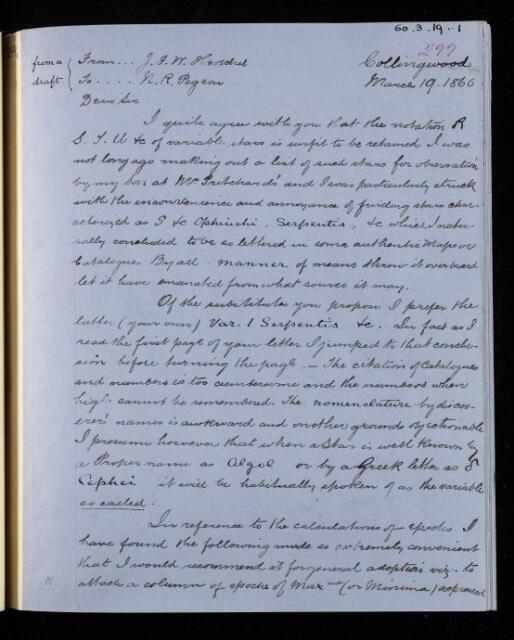 60.3.19..1
297
from a From... J. F. W. Herschel Collingwood
draft To.... N. R. Pogson March 19. 1860
Dear Sir
I quite agree with you that the notation R
S. T. U &c of variable stars is unfit to be retained I was
not long ago making out a list of such stars for observation
by my son at Mr Pritchard's and I was particularly struck
with the inconvenience and annoyance of finding stars char-
acterized as S &c Ophiuchi, Serpentis, &c which I natu-
rally concluded to be so lettered in some authentic Maps or
Catalogues By all manner of means throw it overboard
let it have emanated from what source it may.
Of the substitutes you propose I prefer the
latter (your own) Var. 1 Serpentis &c. In fact as I
read the first page of your letter I jumped to that conclu-
sion before turning the page. — The citation of Catalogues
and numbers is too cumbersome and the numbers when
high cannot be remembered. The nomenclature by discov-
erer's names is awkward and on other grounds objectionable
I presume however that when a Star is well known by
a Proper name as Algol or by a Greek letter as δ
Cephei it will be habitually spoken of as the variable
so called.
In reference to the calculations of epochs I
have found the following mode so extremely convenient
that I would recommend it for general adoption viz. to
attach a column of epochs of Max (or Minima) expressed